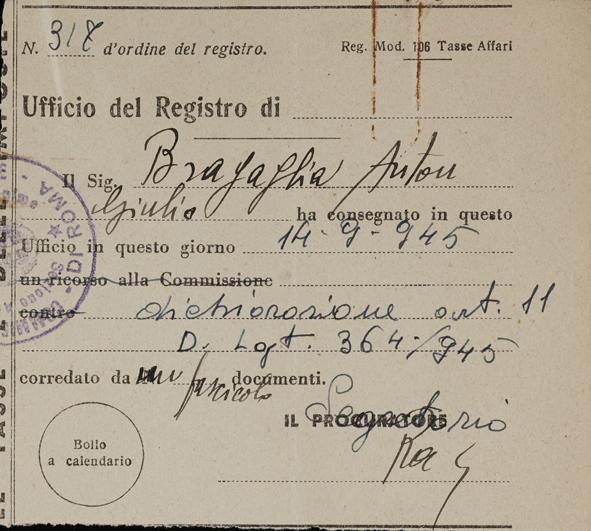 N. 317 d'ordine del registro.
Reg. Mod. 106 Tasse Affari
Ufficio del Registro di
Il Sig. Bragaglia Anton
Giulio ha consegnato in questo
Ufficio in questo giorno 14-9-945
un ricorso alla Commissione
contro dichiarazione art. 11
D. Lgt. 364/945
corredato da un fascicolo documenti.
Segretario
IL PROCURATORE
Bollo
a calendario
DI ROMA